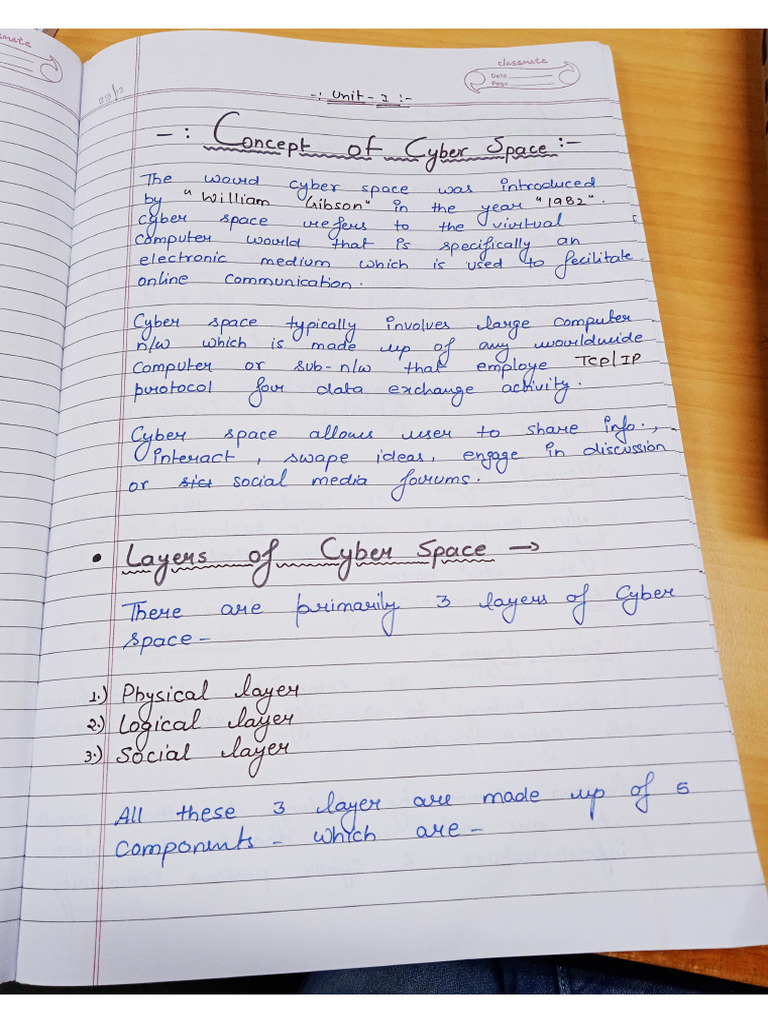 classmate
Date
Page
29/12
-: Unit - I :-
-: Concept of Cyber Space :-
The word cyber space was introduced
by "William Gibson" in the year "1982".
Cyber space refers to the virtual
computer world that is specifically an
electronic medium which is used to fecilitate
online communication.
Cyber space typically involves large computer
n/w which is made up of any worldwide
computer or sub-n/w that employe TCP/IP
protocol for data exchange activity.
Cyber space allows user to share info.,
interact, swape ideas, engage in discussion
or social media forums.
• Layers of Cyber Space →
There are primarily 3 layers of Cyber
space -
1.) Physical layer
2.) Logical layer
3.) Social layer
All these 3 layer are made up of 5
components - which are -